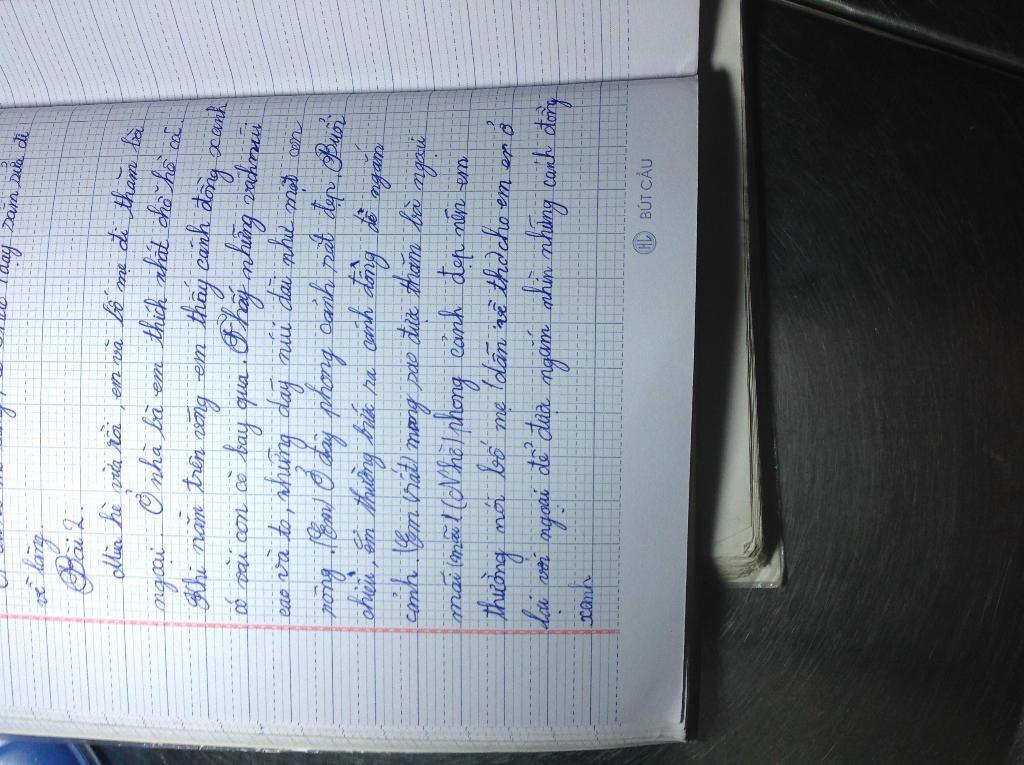 về làng
Bài 2.
Mùa hè vừa rồi, em và bố mẹ đi thăm bà
ngoại. Ở nhà bà em thích nhất chỗ hồ cá.
Khi nằm trên võng em thấy cánh đồng xanh
có vài con cò bay qua. Thấy những vách núi
cao và to, những dãy núi dài như một con
rồng. (Em) Ở đây phong cảnh rất đẹp. Buổi
chiều, em thường bước ra cánh đồng để ngắm
cảnh. (Em rất) mong sao được thăm bà ngoại
mãi (mãi) (Nhờ) phong cảnh đẹp nên em
thường nói bố mẹ (dẫn về thờ) cho em ở
lại với ngoại để được ngắm nhìn những cánh đồng
xanh
BÚT CÂU